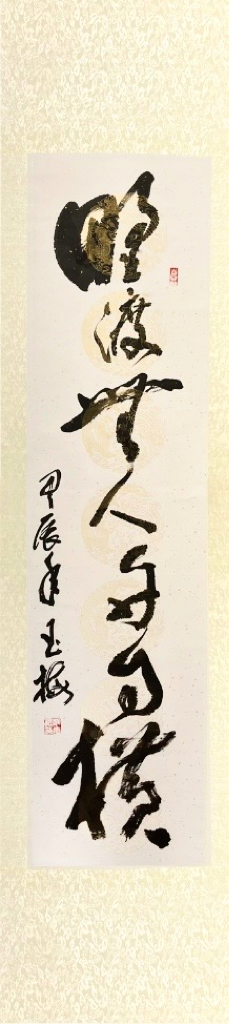 野渡無人舟自橫
甲辰年玉梅